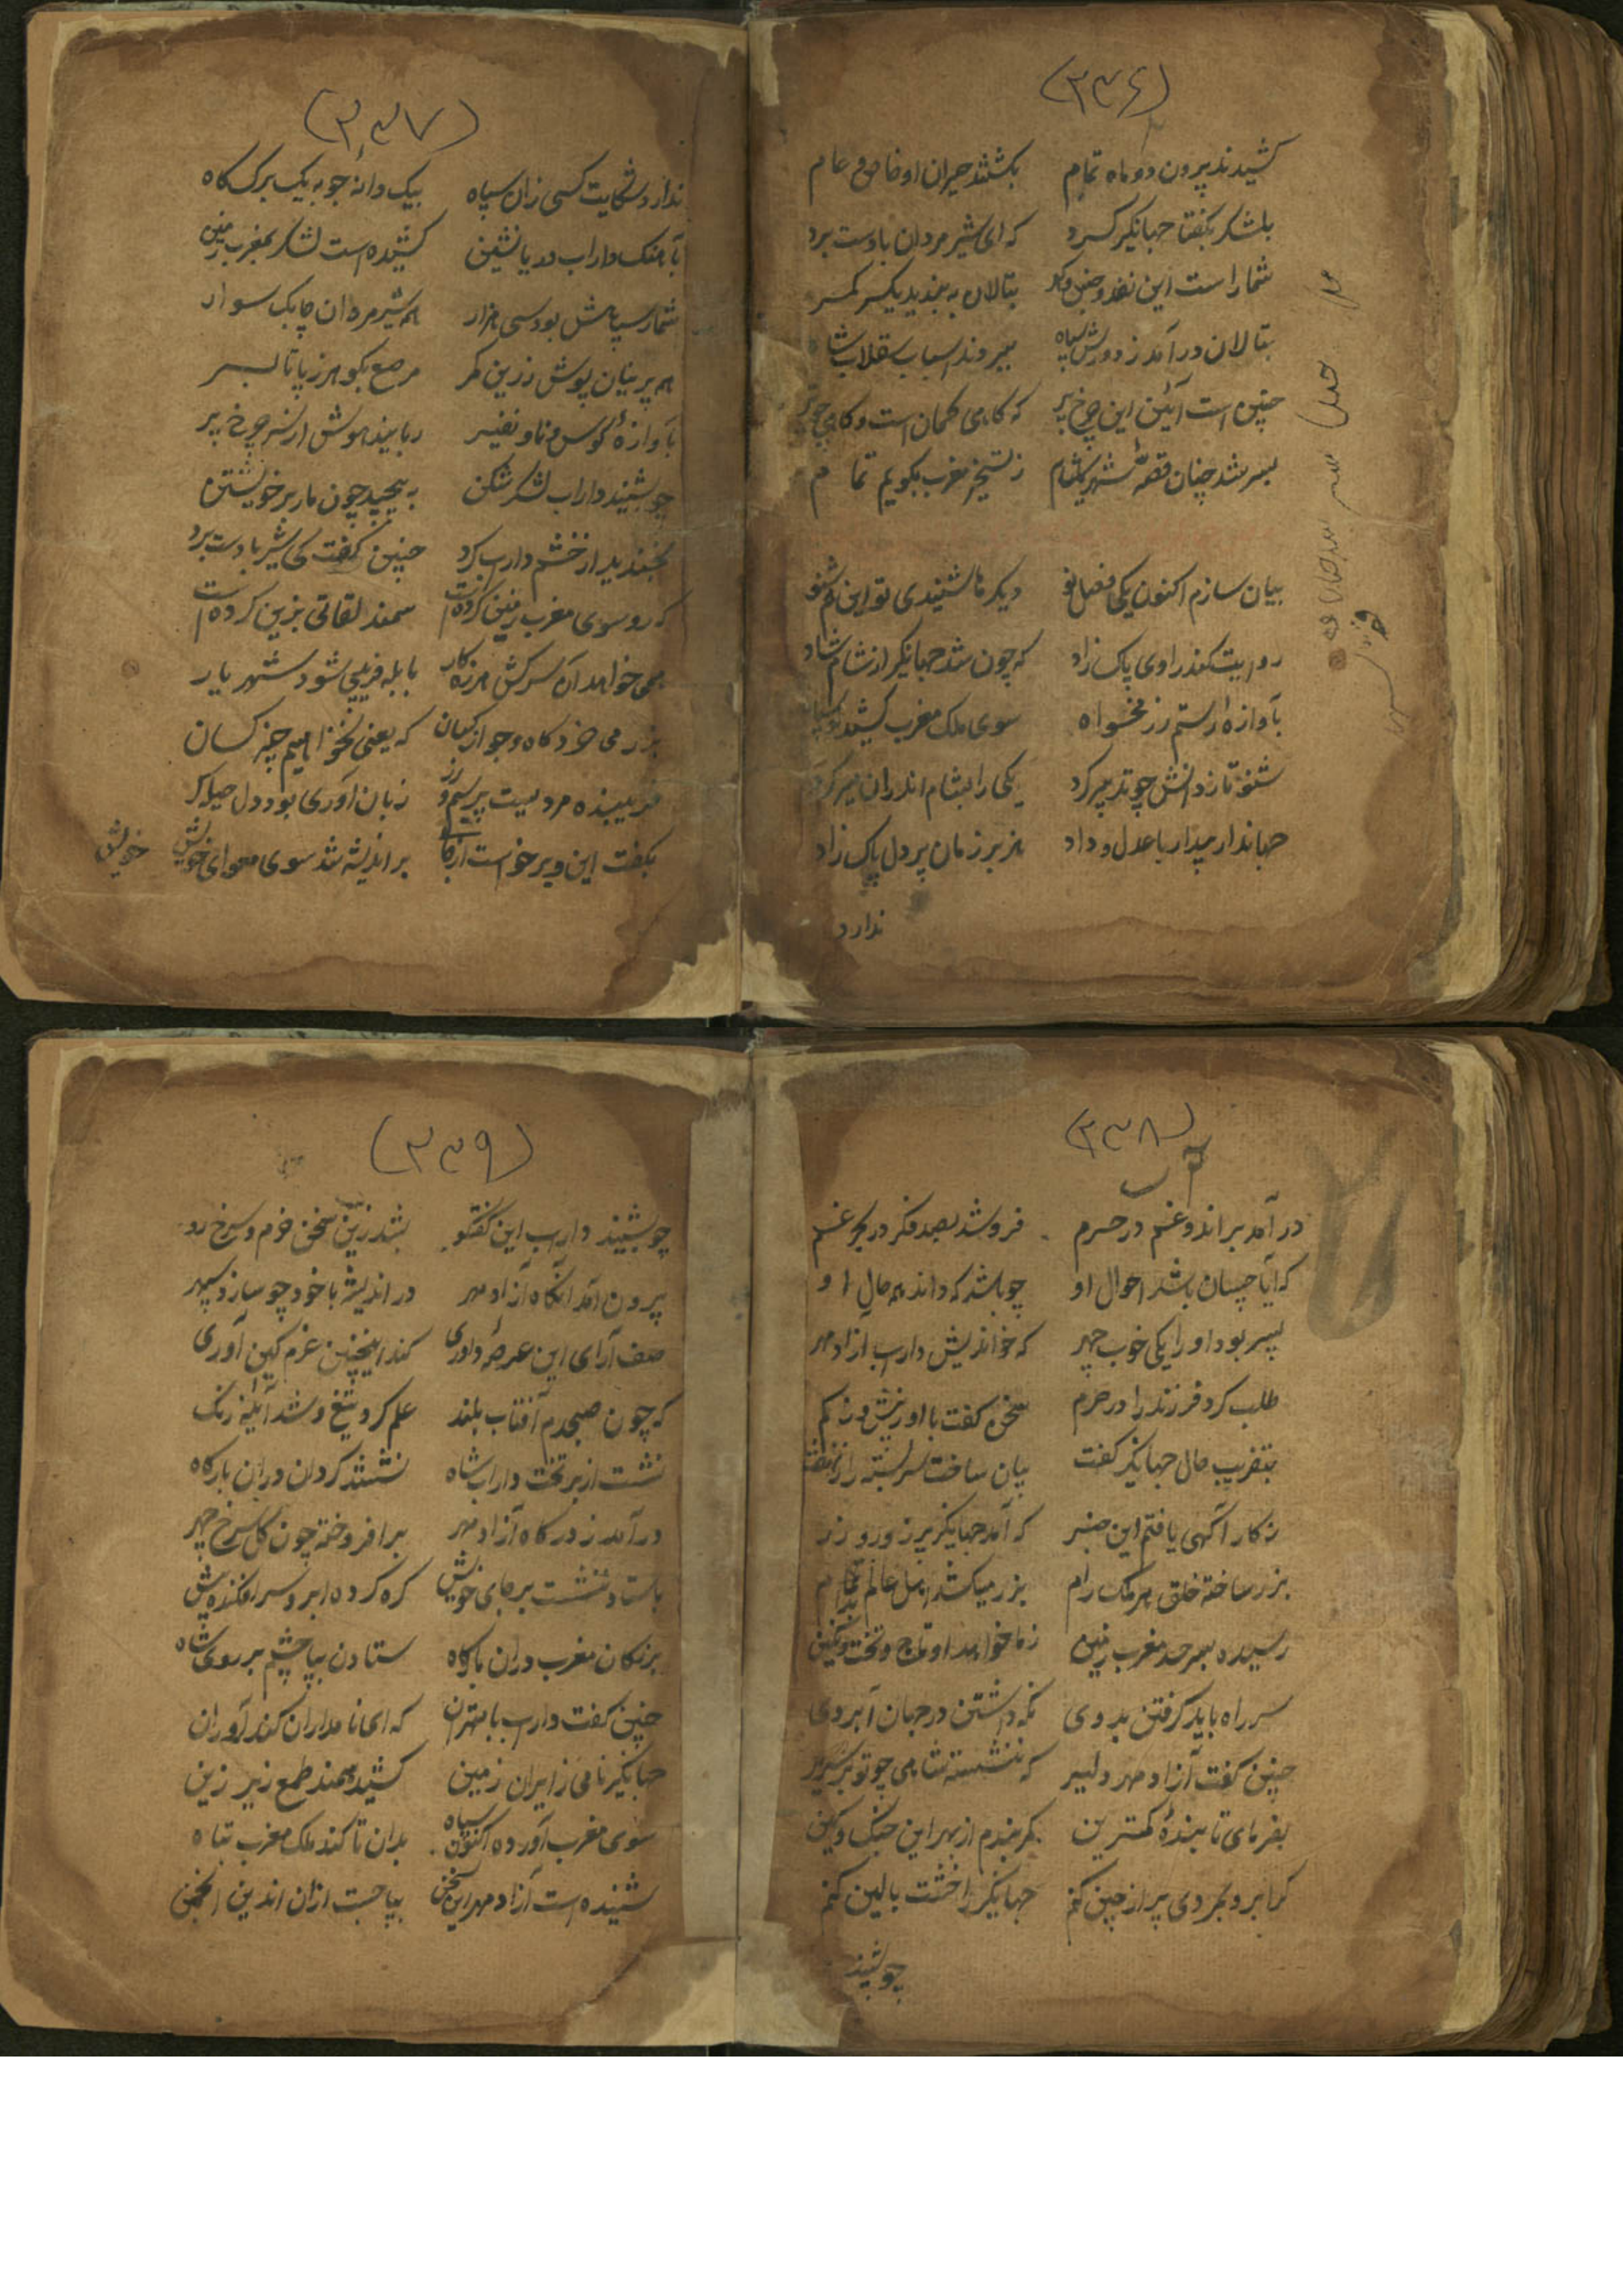 (۲۳۶)
کشیدند پرون دو ماه تمام بکشتند حیران او خاص و عام
بلشکر بکفتا جهانکیر کرد که ای شیر مردان با دست برد
شمار است این نقد و جنس بتالان به بندید یکسر کمر
بتالان در آمد ز دورش سپاه ببردند اسباب سقلاب شاه
چنین است آئین این چرخ پیر که کاهی کمان است و کاهی چو تیر
بسر شد چنان قصهٔ شهر شام ز تسخیر مغرب بکویم تمام
بیان سازم اکنون یکی فصل نو دیکر نا شنیدی تو این هم شنو
روایت کند راوی پاک زاد که چون شد جهانکیر از شام شاد
بآوازه رستم رزمخواه سوی ملک مغرب کشید
شنو تا ز دانش چو تدبیر کرد یکی را بشام اندران میر کرد
جهاندار بیدار با عدل و داد هزبر زمان پر دل پاک زاد
ندارد
(۲۳۷)
ندارد شکایت کسی زان سپاه بیک دانهٔ جو به یک برک کاه
بآهنک داراب دریا نشین کشیده است لشکر بمغرب زمین
شمار سپاهش بود سی هزار همه شیر مردان چابک سوار
همه پرنیان پوش زرین کمر مرصع بکوهر ز پا تا بسر
بآوازهٔ کوس و نا و نفیر رباینده هوش از سر چرخ پیر
چو بشنید داراب لشکر شکن به پیچید چون مار بر خویشتن
بخندید از خشم داراب کرد چنین کفت کی شیر با دست برد
که رو سوی مغرب زمین کرده است سمند لقاتی بزین کرده است
همی خواهد آن سرکش هرزه کار بابله فریبی شود شهریار
بزر می خرد کاه و جو از کیان که یعنی نخواهیم چیز کسان
فریبنده مردیست پر سیم و زر زبان آوری بود دل حیله کر
بکفت این و برخواست از جای خویش بر اندیشه شد سوی ماوای خویش
خویش
(۲۳۸)
در آمد بر اندوه غم در حرم فرو شد بصد فکر در بحر غم
که آیا چسان باشد احوال او چو باشد که داند همه حال او
پسر بود او را یکی خوب چهر که خواندیش داراب آزاد مهر
طلب کرد فرزند را در حرم سخن کفت با او ز بیش و ز کم
بتقریب حال جهانکیر کفت بیان ساخت سر بسته راز نهفت
ز کار آکهی یافتم این خبر که آمد جهانکیر بر زور و زر
بزر ساخته خلق هر ملک رام بزر میکشد اهل عالم تمام
رسیده بسرحد مغرب زمین ز ما خواهد او تاج و تخت و نکین
سر راه باید کرفتن بدوی نکه داشتن در جهان آبروی
چنین کفت آزاد مهر دلیر که ننشسته شاهی چو تو بر سریر
بفرمای تا بندهٔ کمترین کمر بندم از بهر این جنک و کین
کمابرو بمردی پر از چین کنم جهانکیر را خشت بالین کنم
چو بشنید
(۲۳۹)
چو بشنید داراب این کفتکو بشد زین سخن خرم و سرخ رو
پرون آمد آنکاه آزاد مهر در اندیشه با خود چو سازد سپهر
صف آرای این عرصهٔ داوری کند اینچنین عزم کین آوری
که چون صبحدم آفتاب بلند علم کرد تیغ و شد آینه رنک
نشست از بر تخت داراب شاه نشستند کردان دران بارکاه
در آمد ز درکاه آزاد مهر برافروخته چون کل سرخ چهر
باستاد ننشست بر جای خویش کره کرده ابرو سر افکنده پیش
بزرکان مغرب دران بارکاه ستادن بپا چشم بر روی شاه
چنین کفت داراب با مهتران که ای نامداران کند آوران
جهانکیر نامی ز ایران زمین کشیده سمند طمع زیر زین
سوی مغرب آورده اکنون سپاه بدان تا کند ملک مغرب تباه
شنیده است آزاد مهر این سخن بپا جست ازان اندرین انجمن